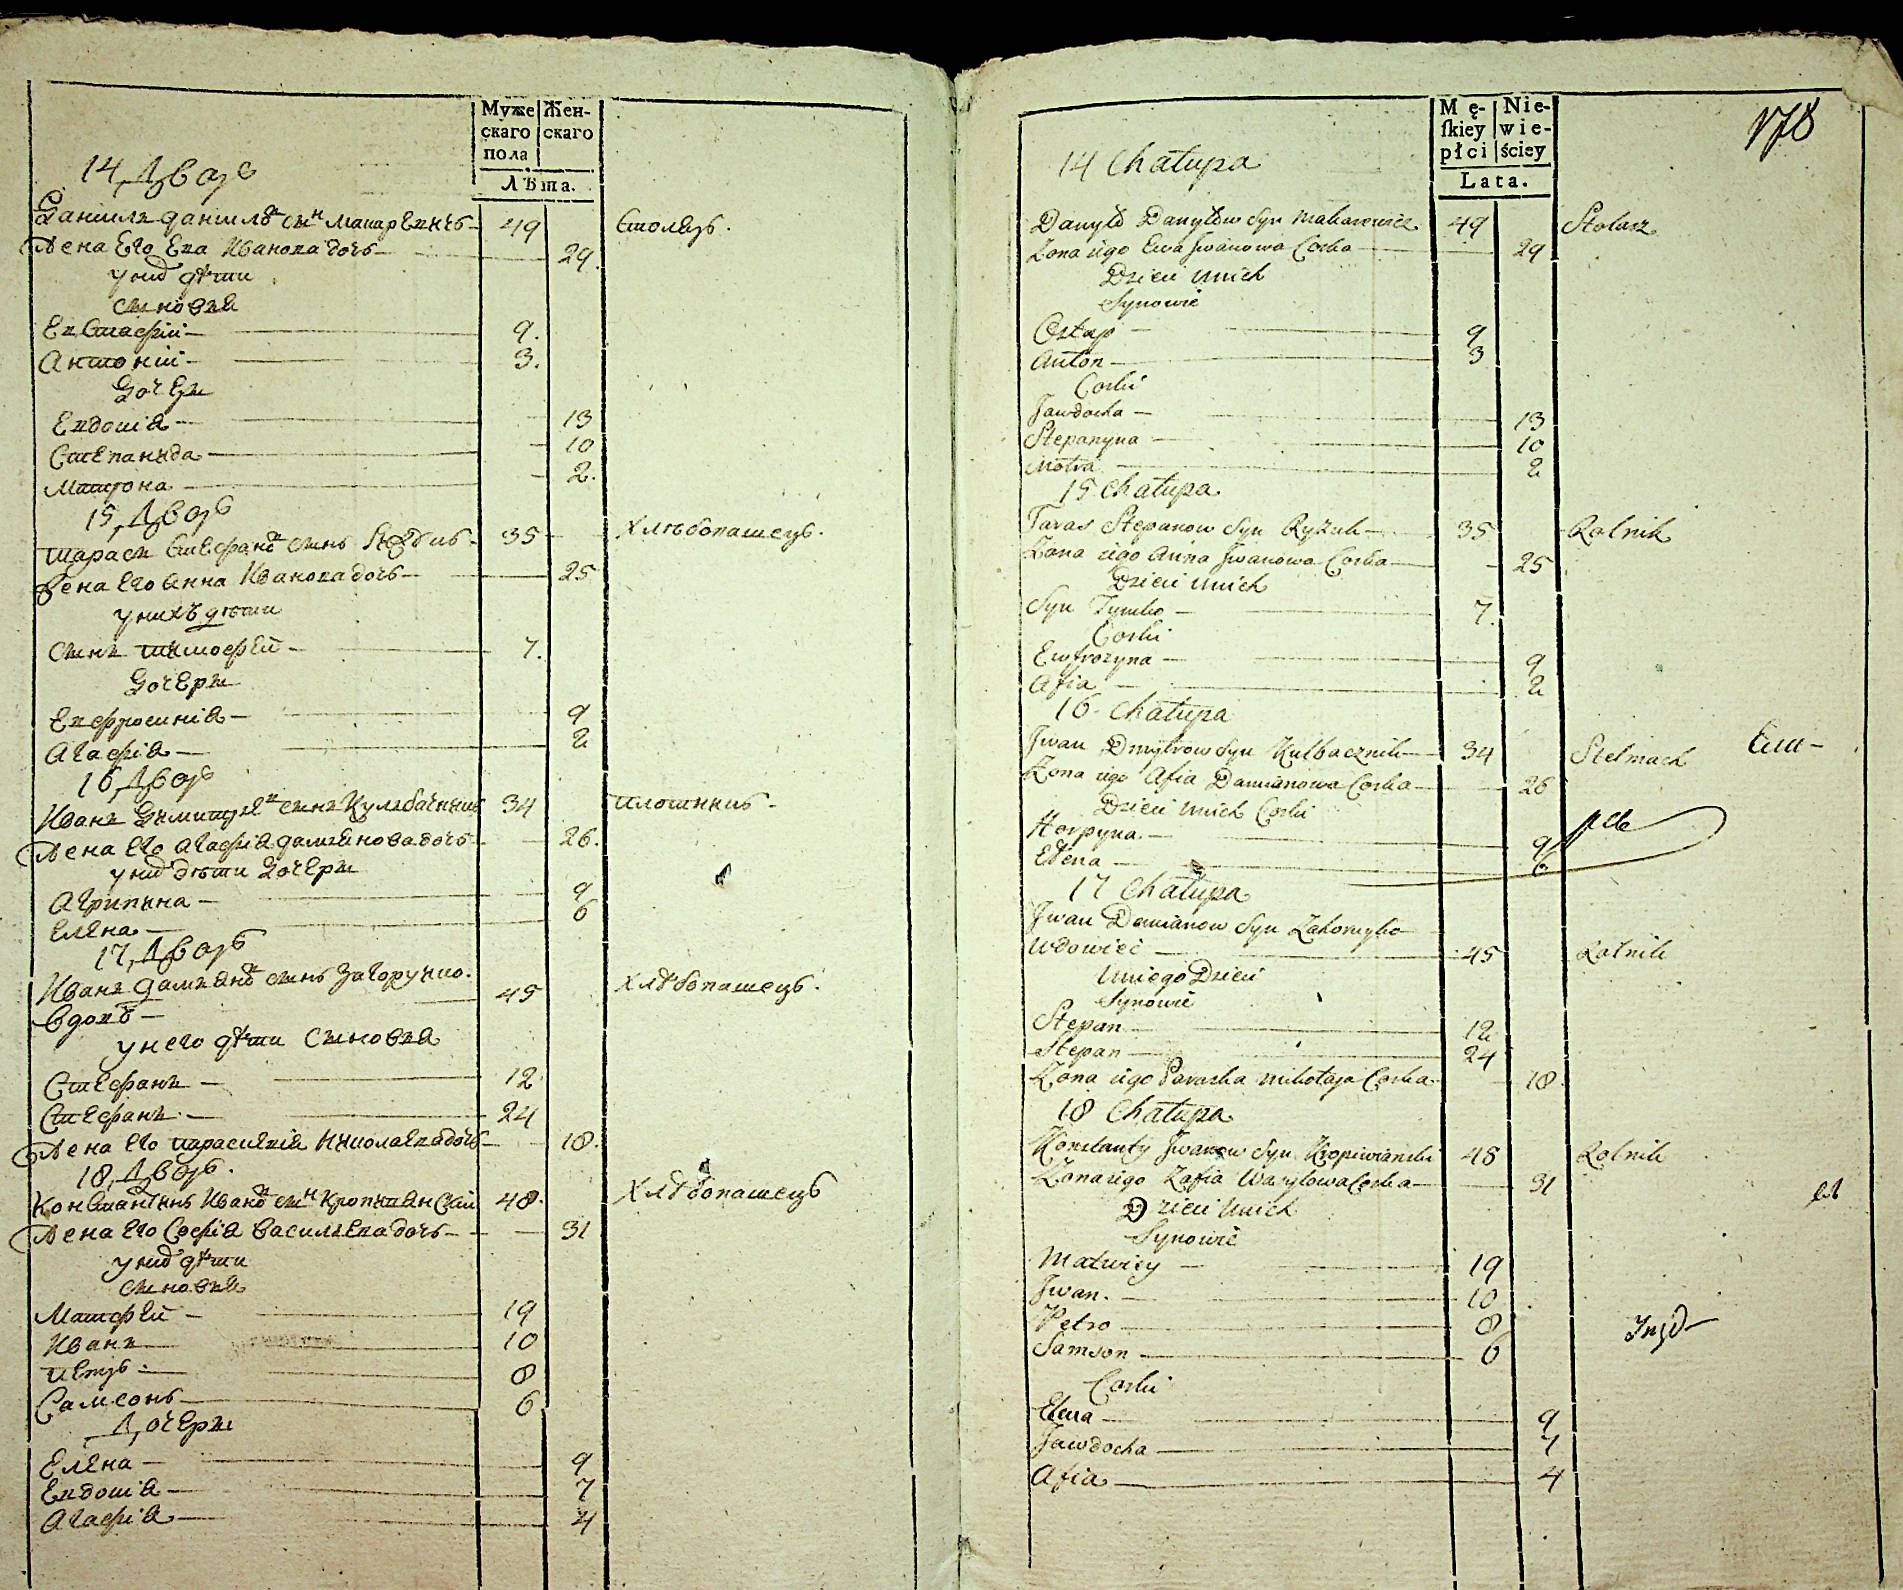 Муже
скаго
пола
Жен-
скаго
Лѣта.
14 Дворъ
Данило Данилов Сын Макаревичъ 49 Столяръ.
Жена Его Ева Иванова дочь 29.
у них дѣти
Сыновья
Евстафій 9.
Антоній 3.
Дочери
Евдокія 13
Степанида 10
Матрона 2.
15 Дворъ
Тарас Стефанов Сынъ 35 Хлѣбопашецъ.
Жена Его Анна Иванова дочь 25
у нихъ дѣти
Сынъ Тимофей 7.
Дочери
Евфросинія 9
Агафія 2
16 Дворъ
Иванъ Димитріев Сынъ Кулбачникъ 34 Плотникъ
Жена Его Агафія Дамянова дочь 26.
у них дѣти Дочери
Агрипина 9
Елена 6
17 Дворъ
Иванъ Дамянов Сынъ Загорулко. 45 Хлѣбопашецъ.
Вдовъ
у него дѣти Сыновья
Стефанъ 12
Стефанъ 24
Жена Его Параскевія Николаева дочь 18.
18 Дворъ.
Константинъ Иванов Сын Кропивянскій 48. Хлѣбопашецъ
Жена Его Софія Василіева дочь 31
у них дѣти
Сыновья
Матфей 19
Иванъ 10
Петръ 8
Самсонъ 6
Дочери
Елена 9
Евдокія 7
Агафія 4
Mę-
ſkiey
płci
Nie-
wie-
ściey
Lata.
178
14 Chałupa
Danyło Danyłow Syn Makarewicz 49 Stolarz
Zona iego Ewa Jwanowa Corka 29
Dzieci unich
Synowie
Ostap 9
Anton 3
Corki
Jawdocha 13
Stepanyna 10
Motra 2
15 Chałupa
Taras Stepanow Syn Ryżuk 35 Rolnik
Zona iego Anna Jwanowa Corka 25
Dzieci unich
Syn Tymko 7.
Corki
Ewfrozyna 9
Afia 2
16 Chałupa
Jwan Dmytrow Syn Kulbacznik 34 Stelmach
Zona iego Afia Damianowa Corka 26
Dzieci unich Corki
Horpyna 9
Ełena 6
17 Chałupa
Jwan Demianow Syn Zahorulko
Wdowiec 45 Rolnik
Uniego Dzieci
Synowie
Stepan 12
Stepan 24
Zona iego Paraska Mikołaja Corka 18
18 Chałupa
Konstanty Jwanow Syn Kropiwianski 48 Rolnik
Zona iego Zofia Wasylowa Corka 31
Dzieci unich
Synowie
Matwiey 19
Jwan. 10
Petro 8
Samson 6
Corki
Ełena 9
Jawdocha 7
Afia 4